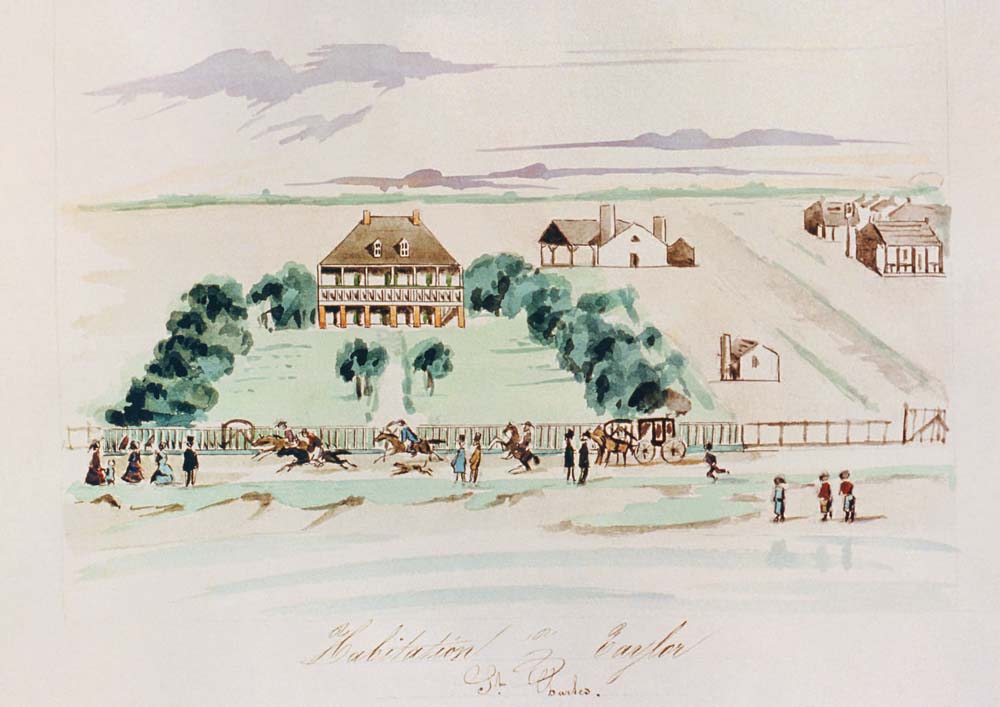 Habitation Taylor
St. Charles.